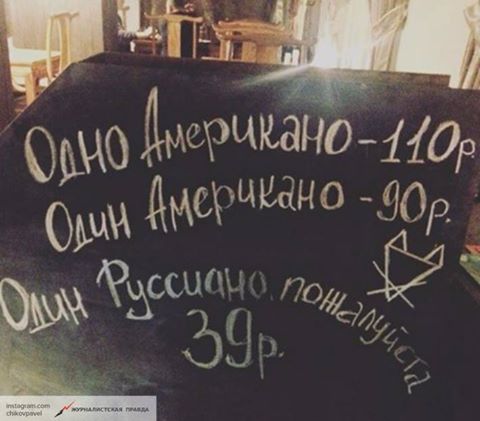 Одно Американо - 110р.
Один Американо - 90р.
Один Руссиано, пожалуйста
39р.
instagram.com
chikovpavel
ЖУРНАЛИСТСКАЯ ПРАВДА